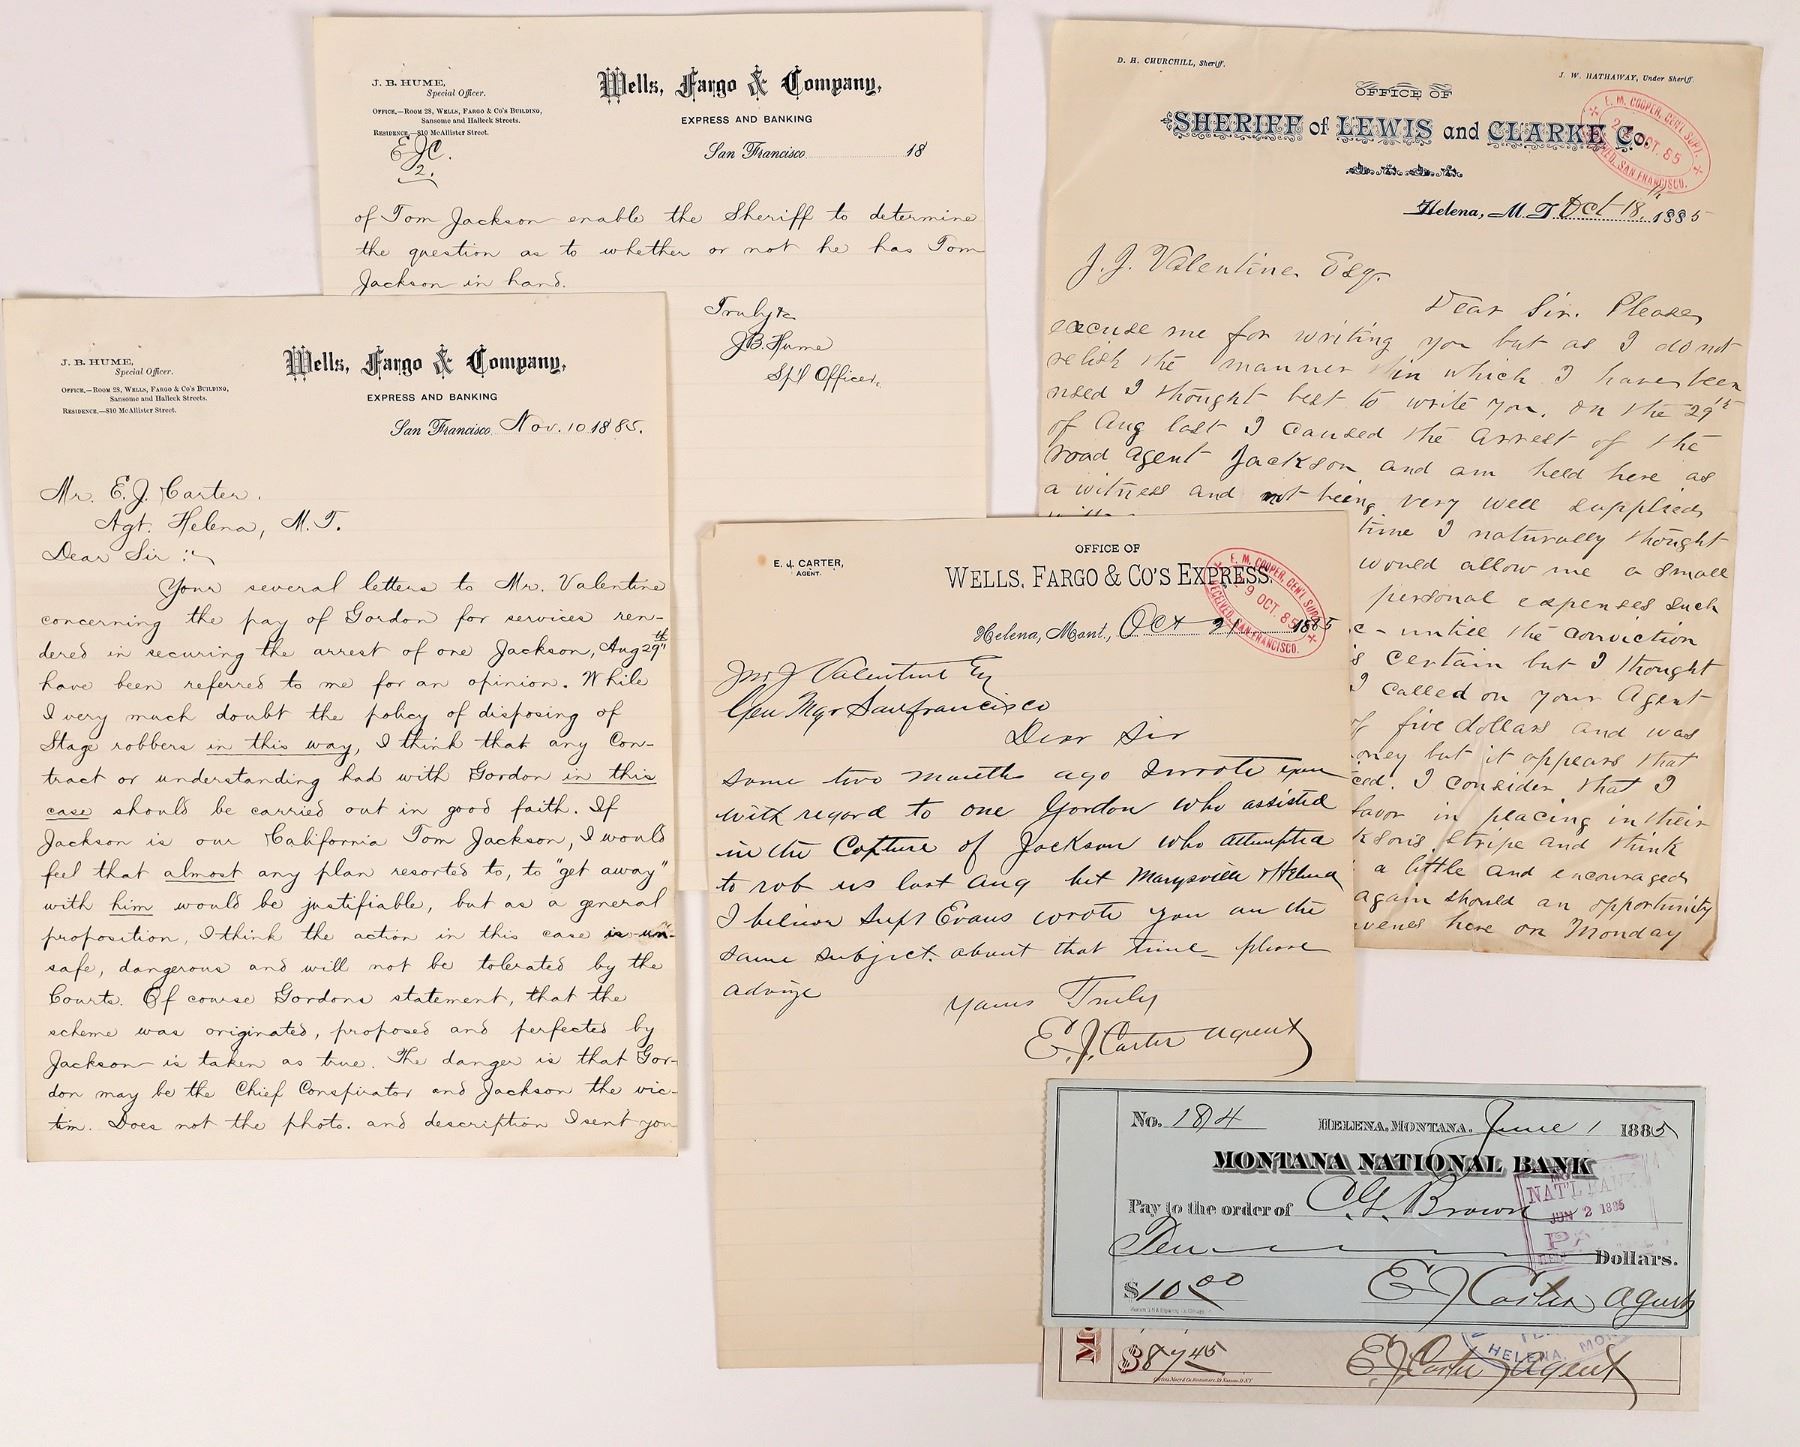 J. B. HUME,
Special Officer.
OFFICE,—ROOM 28, WELLS, FARGO & CO'S BUILDING,
Sansome and Halleck Streets.
RESIDENCE,—810 McAllister Street.
Wells, Fargo & Company,
EXPRESS AND BANKING
San Francisco 18
E.J.C.
2.
of Tom Jackson enable the Sheriff to determine
the question as to whether or not he has Tom
Jackson in hand.
Truly &c
J.B. Hume
Spl Officer.
J. B. HUME,
Special Officer.
OFFICE,—ROOM 28, WELLS, FARGO & CO'S BUILDING,
Sansome and Halleck Streets.
RESIDENCE,—810 McAllister Street.
Wells, Fargo & Company,
EXPRESS AND BANKING
San Francisco Nov. 10 1885.
Mr. E. J. Carter.
Agt. Helena, M. T.
Dear Sir :
Your several letters to Mr. Valentine
concerning the pay of Gordon for services ren-
dered in securing the arrest of one Jackson, Aug 29th
have been referred to me for an opinion. While
I very much doubt the policy of disposing of
Stage robbers in this way, I think that any Con-
tract or understanding had with Gordon in this
case should be carried out in good faith. If
Jackson is our California Tom Jackson, I would
feel that almost any plan resorted to, to "get away"
with him would be justifiable, but as a general
proposition, I think the action in this case is un-
safe, dangerous and will not be tolerated by the
Courts. Of course Gordons statement, that the
scheme was originated, proposed and perfected by
Jackson is taken as true. The danger is that Gor-
don may be the Chief Conspirator and Jackson the vic-
tim. Does not the photo. and description I sent you
D. H. CHURCHILL, Sheriff.
J. W. HATHAWAY, Under Sheriff.
OFFICE OF
SHERIFF of LEWIS and CLARKE Co.
E. M. COOPER, GEN'L SUPT.
OCT. 85
RECEIVED, SAN FRANCISCO.
Helena, M. T. Oct 18th, 1885
J. J. Valentine Esq.
Dear Sir. Please
excuse me for writing you but as I do not
relish the manner in which I have been
used I thought best to write you. on the 29th
of Aug last I caused the arrest of the
road agent Jackson and am held here as
a witness and not being very well supplied
time I naturally thought
would allow me a small
personal expenses such
c - untill the conviction
s certain but I thought
I called on your Agent
of five dollars and was
oney but it appears that
ced. I consider that I
favor in placing in their
ksons stripe and think
a little and encouraged
again should an opportunity
venes here on Monday
E. J. CARTER,
AGENT.
OFFICE OF
WELLS, FARGO & CO'S EXPRESS.
E. M. COOPER, GEN'L SUPT.
9 OCT. 85
RECEIVED, SAN FRANCISCO.
Helena, Mont., Oct 21 1885
Jno J Valentine Esq
Gen Mgr San francisco
Dear Sir
Some two months ago I wrote you
with regard to one Gordon who assisted
in the Capture of Jackson who attempted
to rob us last Aug bet Marysville & Helena
I believe Supt Evans wrote you on the
same subject about that time - please
advise
Yours Truly
E. J. Carter agent
No. 1814 HELENA, MONTANA. June 1 1885
MONTANA NATIONAL BANK
Pay to the order of C. G. Brown
Ten Dollars.
$10.00
E J Carter agent
NAT'L BANK
JUN 2 1885
$87.45
E. J. Carter Agent
HELENA, MON